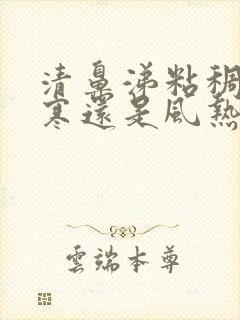 清鼻涕粘稠
寒還是風熱
雲端本尊